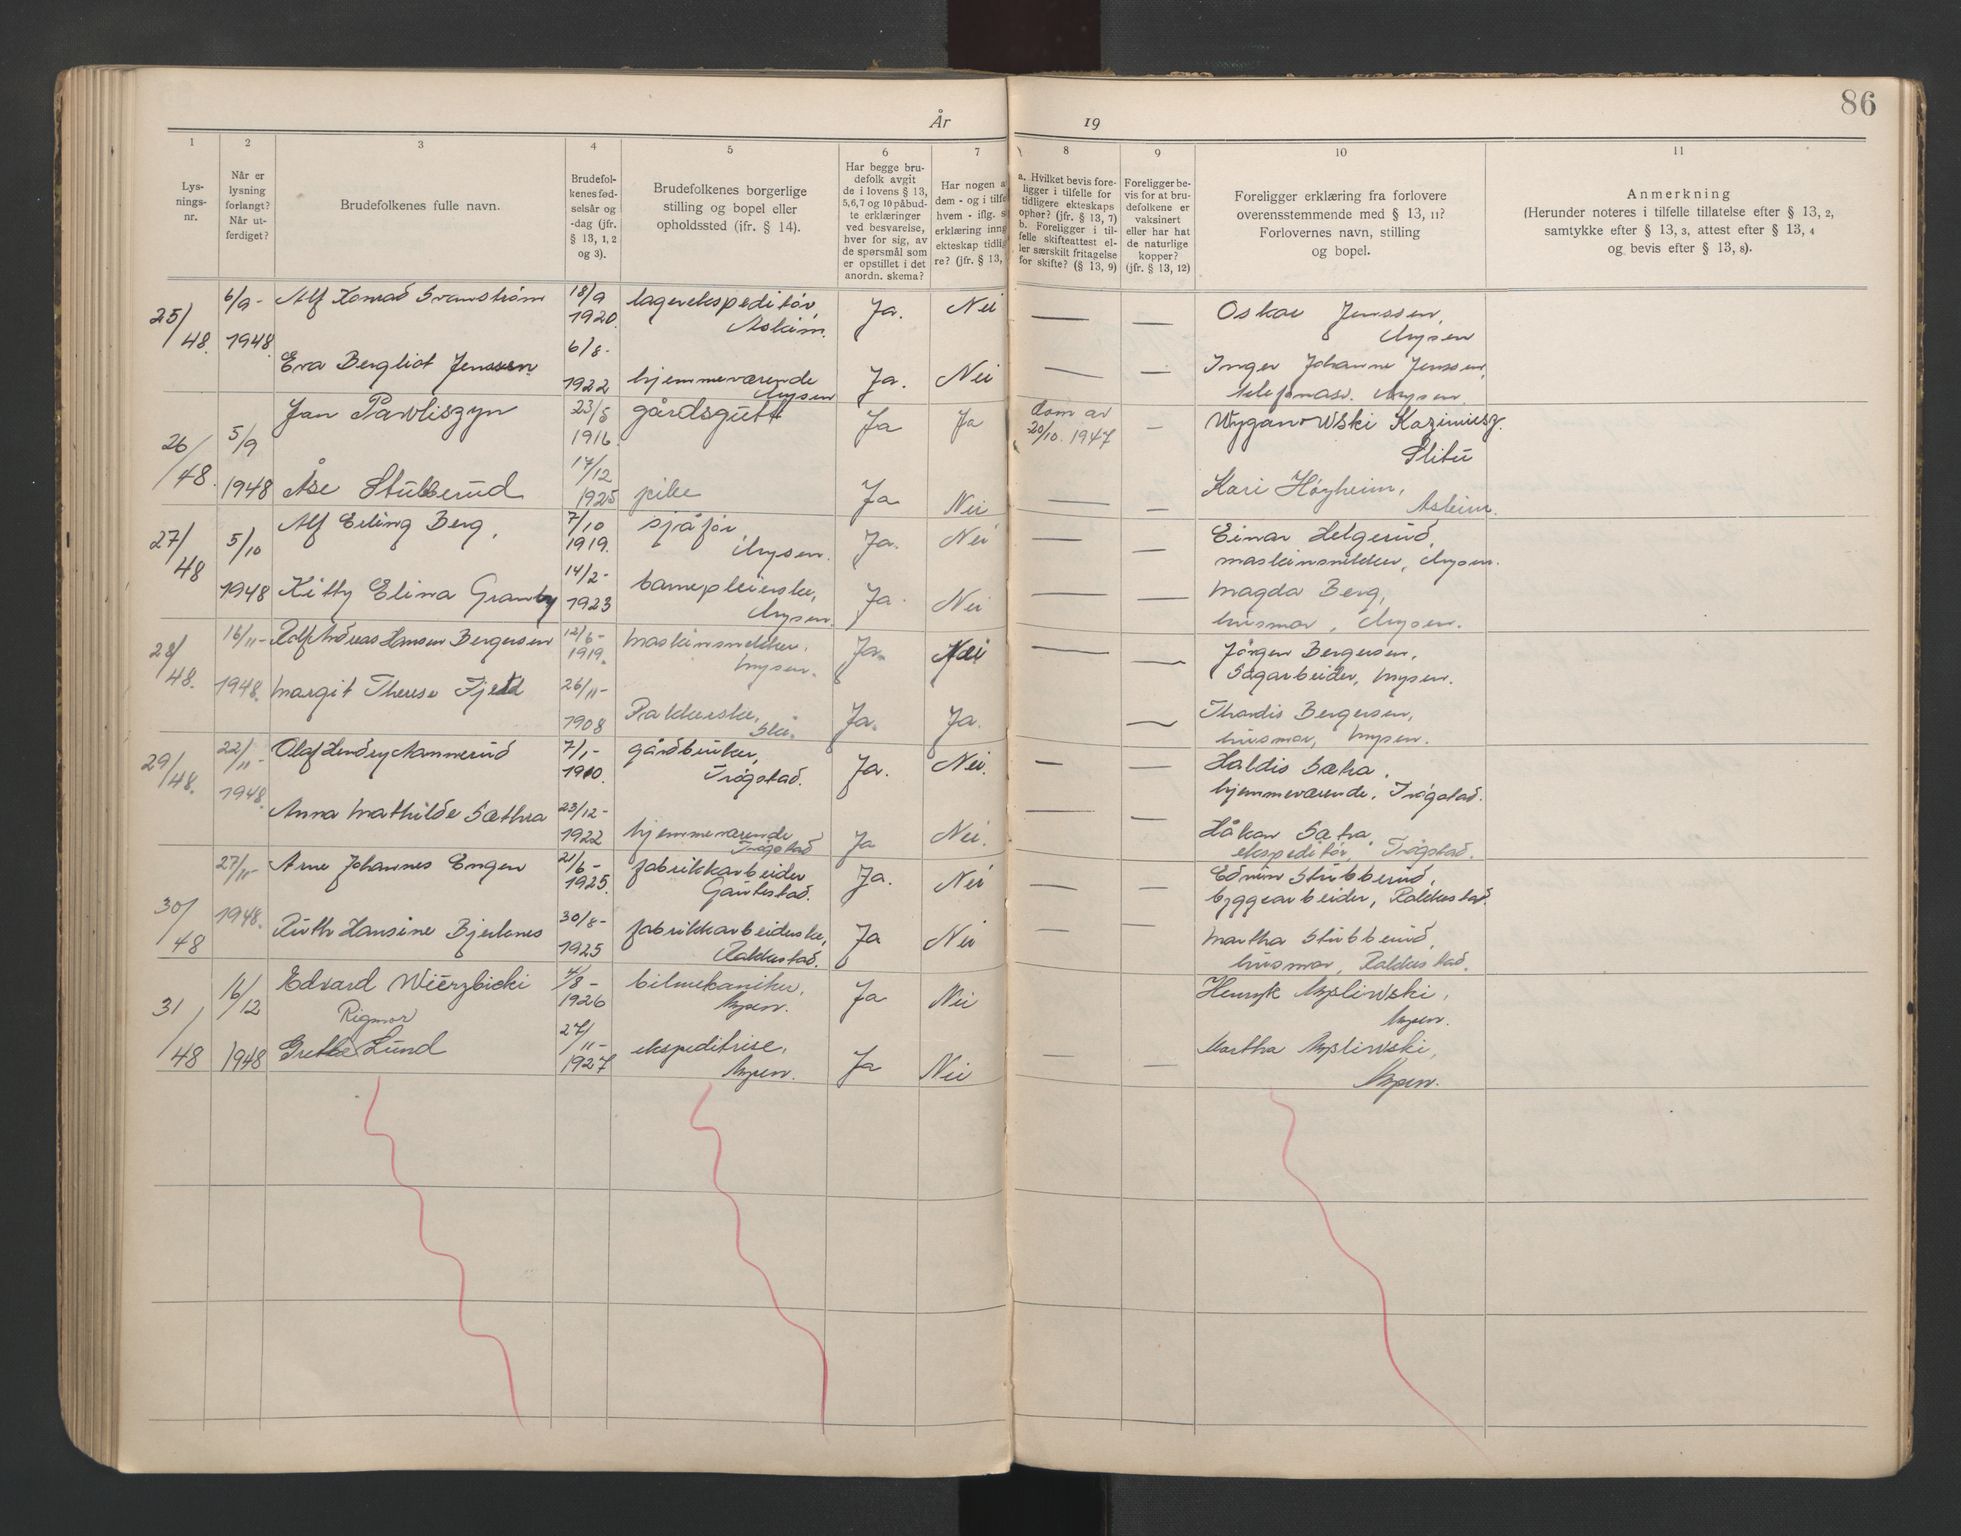 86
År 19
1 2 3 4 5 6 7 8 9 10 11
Lys-
nings-
nr.
Når er
lysning
forlangt?
Når ut-
ferdiget?
Brudefolkenes fulle navn.
Brudefol-
kenes fød-
selsår og
-dag (jfr.
§ 13, 1, 2
og 3).
Brudefolkenes borgerlige
stilling og bopel eller
opholdssted (ifr. § 14).
Har begge bru-
defolk avgit
de i lovens § 13,
5,6,7 og 10 påbud-
te erklæringer
ved besvarelse,
hver for sig, av
de spørsmål som
er opstillet i det
anordn. skema?
Har nogen a
dem - og i tilfe
hvem - iflg. s
erklæring inng
ekteskap tidlig
re? (jfr. § 13,
a. Hvilket bevis fore-
ligger i tilfelle for
tidligere ekteskaps
ophør? (jfr. § 13, 7)
b. Foreligger i til-
felle skifteattest el-
ler særskilt fritagelse
for skifte? (§ 13, 9)
Foreligger be-
vis for at bru-
defolkene er
vaksinert
eller har hat
de naturlige
kopper?
(jfr. § 13, 12)
Foreligger erklæring fra forlovere
overensstemmende med § 13, 11?
Forlovernes navn, stilling
og bopel.
Anmerkning
(Herunder noteres i tilfelle tillatelse efter § 13, 2,
samtykke efter § 13, 3, attest efter § 13, 4
og bevis efter § 13, 8).
25/48. 6/9- 1948. Alf Konrad Svanstrøm 18/9 1920. lagerekspeditør, Askim. Ja. Nei — — Oskar Jenssen, Mysen
Eva Bergliot Jenssen 6/8- 1922 hjemmeværende Mysen Ja. Nei — — Inger Johanne Jenssen, telefonass. Mysen.
26/48. 5/9 1948 Jan Pawliszyn 23/5 1916. gårdsgutt Ja Ja Dom av 20/10. 1947 — Wyganowski Kazimiesz. Slitu
Åse Stubberud 17/12 1925 pike Ja Nei — — Kari Høyheim, Askim.
27/48 5/10 1948 Alf Erling Berg, 7/10 1919. sjåfør Mysen. Ja. Nei — — Einar Helgerud, maskinsnekker, Mysen.
Kitty Elina Granby 14/2- 1923 barnepleierske, Mysen. Ja. Nei — — Magda Berg, husmor, Mysen.
28/48. 16/11- 1948. Rolf Andreas Hansen Bergersen 12/6- 1919. Maskinsnekker, Mysen. Ja. Nei — — Jörgen Bergersen, Sagarbeider, Mysen.
Margit Therese Fjeld 26/11- 1908 Pakkerske, Ski. Ja. Ja. — Thordis Bergersen, husmor, Mysen.
29/48. 22/11- 1948. Olaf Hendry Nannerud 7/1- 1910. gårdbruker, Trøgstad. Ja. Nei. — — Haldis Sætra, hjemmeværende, Trøgstad.
Anna Mathilde Sæthra 23/12- 1922 hjemmeværende Trøgstad Ja Nei. — — Håkon Sætra ekspeditør, Trøgstad.
30/48 27/11- 1948. Arne Johannes Engen 21/6- 1925. fabrikkarbeider Gautestad. Ja. Nei — — Edvin Stubberud, byggearbeider, Rakkestad.
Ruth Hansine Bjerknes 30/8- 1925 fabrikkarbeiderske, Rakkestad. Ja Nei — — Martha Stubberud, husmor, Rakkestad.
31/48 16/12 1948 Edvard Wierzbicki 4/8- 1926 bilmekaniker, Mysen. Ja Nei Henryk Mysliwski, Mysen.
Rigmor
Grethe Lund 27/11- 1927 ekspeditrise, Mysen. Ja Nei — — Martha Mysliwski, Mysen.